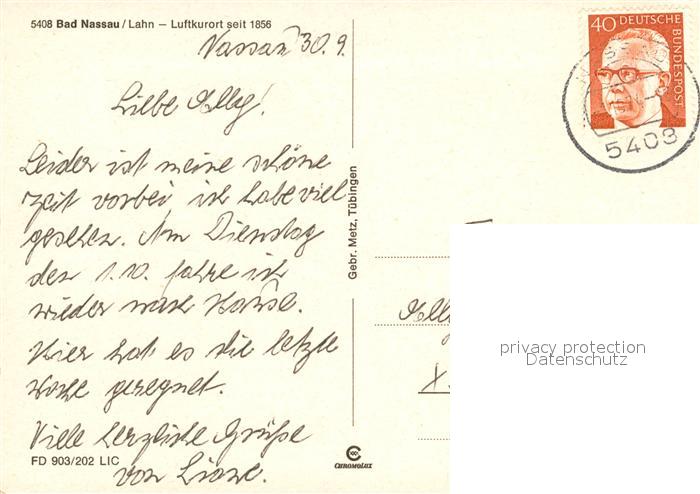 5408 Bad Nassau / Lahn – Luftkurort seit 1856
Nassau 30.9.
Liebe Elly!
Leider ist meine schöne
Zeit vorbei ich habe viel
gesehen. Am Dienstag
den 1.10. fahre ich
wieder nach Hause.
Hier hat es die letzte
Woche geregnet.
Viele herzliche Grüße
von
FD 903/202 LIC
Gebr. Metz, Tübingen
CHROMOLUX
40 DEUTSCHE
BUNDESPOST
5408
privacy protection
Datenschutz